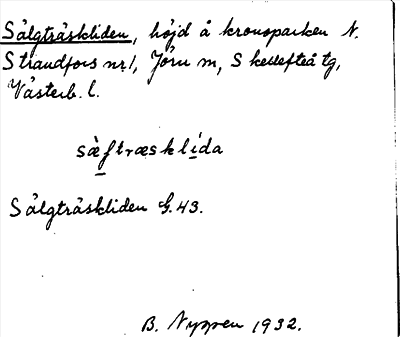 Sälgträskliden, höjd å kronoparken N.
Strandfors nr 1, Jörn sn, Skellefteå tg,
Västerb. l.
sæftræsklida
Sälgträskliden G.43.
B. Nyggen 1932.